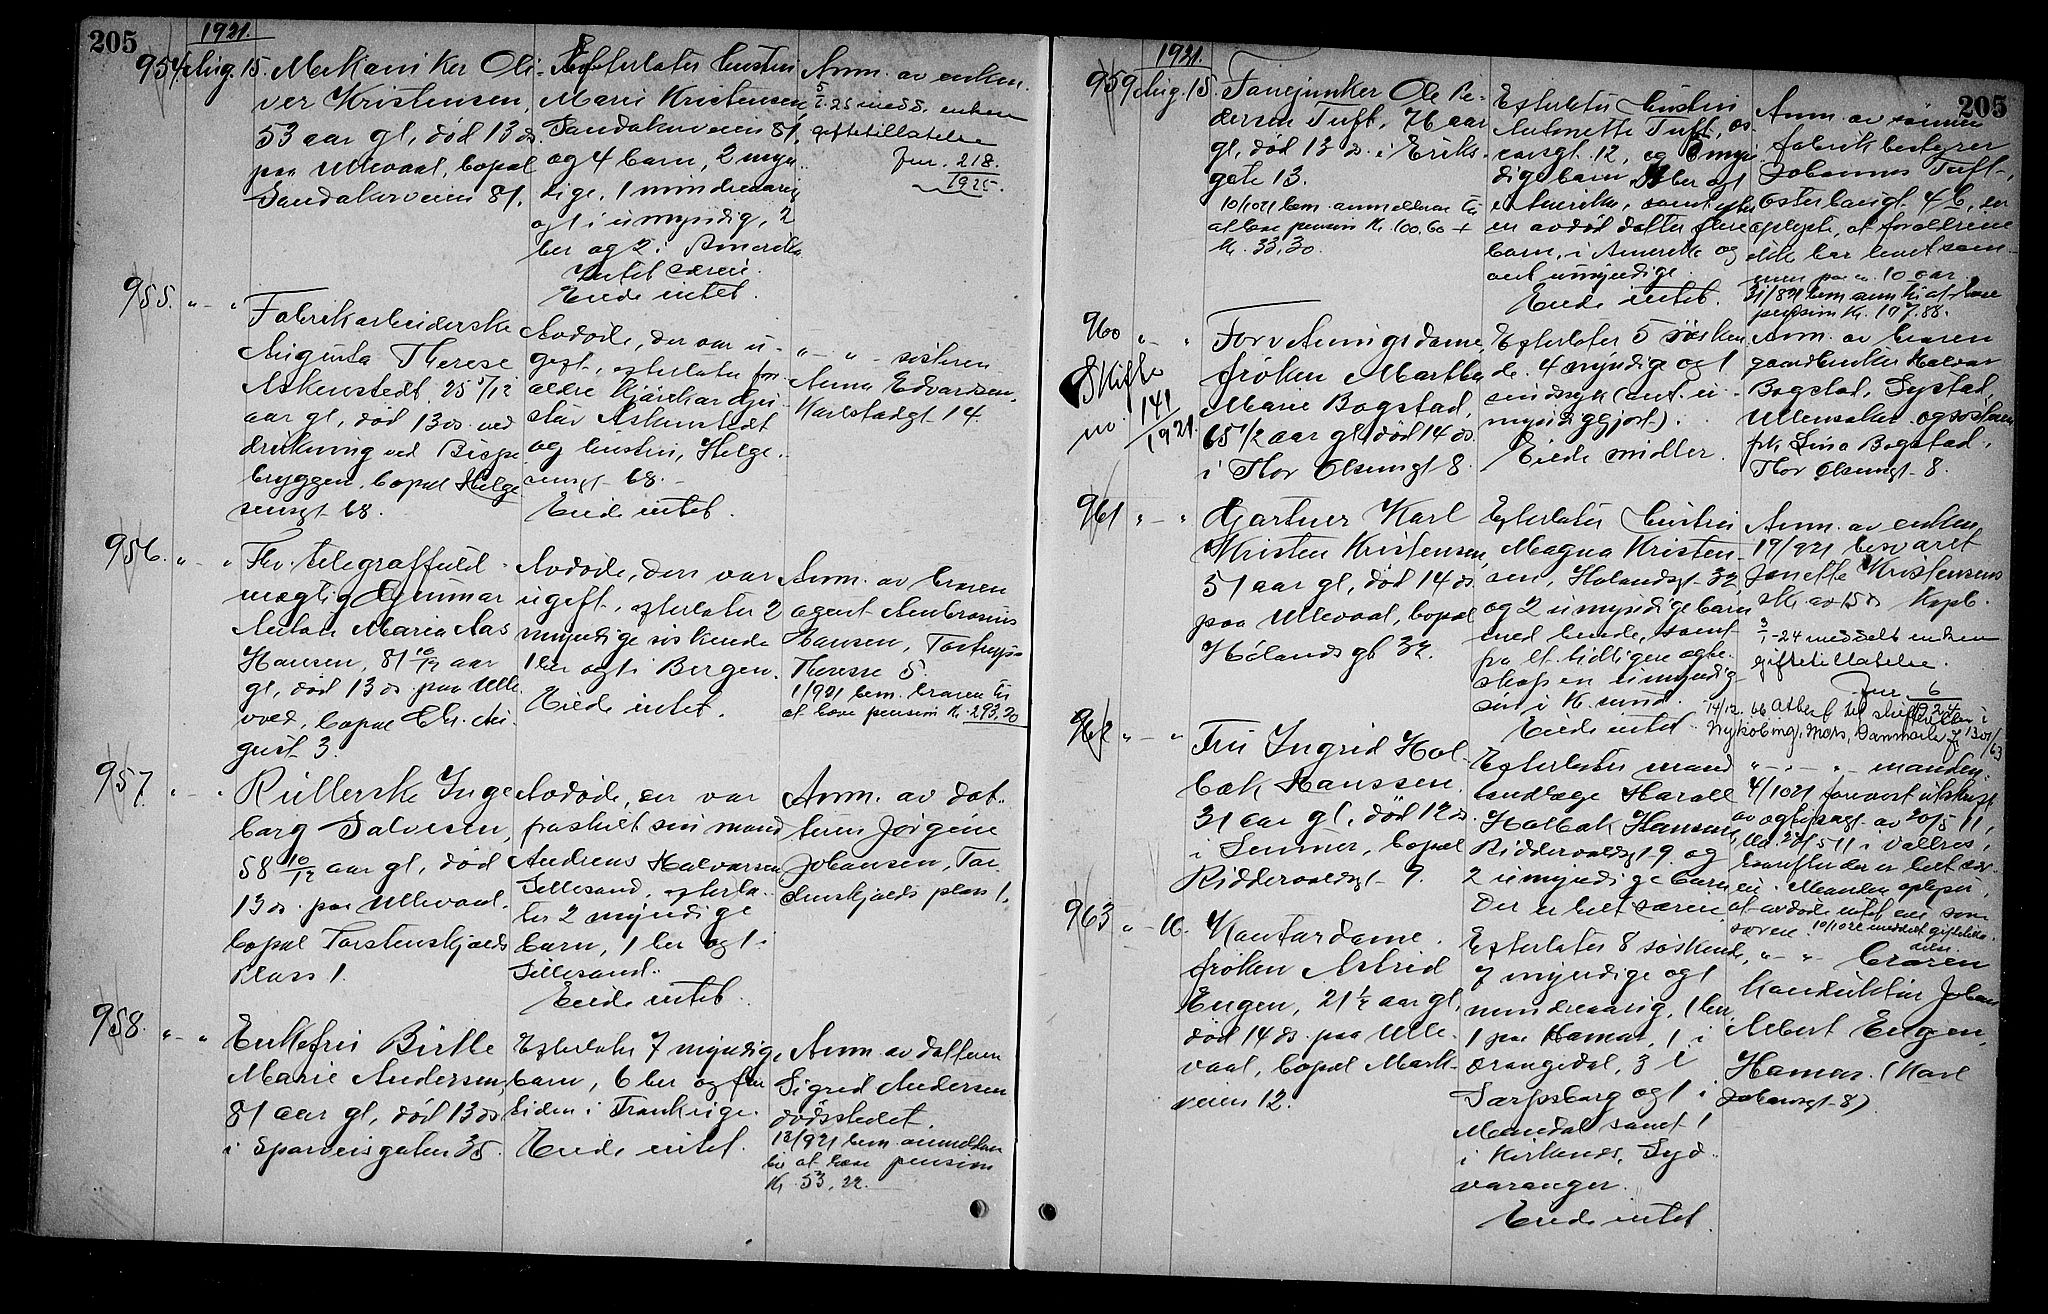 205
1921.
954 Aug. 15. Mekaniker Oli-
ver Kristensen,
53 aar gl, död 13 ds.
paa Ullevaal, bopæl
Sandakerveien 81.
Efterlater hustru
Marie Kristensen,
Sandakerveien 81,
og 4 barn, 2 myn-
dige, 1 mindreaarig
og 1 umyndig, 2
her og 2 i Amerika
Intet særeie.
Eiede intet.
Anm. av enken.
5/1.25 medd. enken
giftetillatelse
Jnr. 218.
1925.
955. " - " Fabrikarbeiderske
Augusta Therese
Askenstedt, 25 5/12
aar gl, död 13 ds. ved
drukning ved Bispe
bryggen, bopæl Helge
sensgt 68.
Avdöde, der var u-
gift, efterlater for-
ældre Kjörekar Gu-
stav Askenstedt
og hustru, Helge-
sensgt 68.
Eiede intet.
" - " - sösteren
Anna Edvardsen,
Karlstadgt 14.
956. " - " Fhv. telegraffuld-
mægtig Gunnar
Anton Maria Aas
Hansen, 81 10/12 aar
gl, död 13 ds paa Ulle
vaal, bopæl Chr. Au-
gust 3.
Avdöde, der var
ugift, efterlater 2
myndige söskende
1 her og 1 i Bergen.
Eiede intet.
Anm. av broren
agent Ambrosius
Hansen,
Therese 5.
1/921 bem. broren til
at hæve pension Kr. 293,30
957. " - " Rullerske Inge
borg Salvesen,
58 10/12 aar gl, död
13 ds. paa Ullevaal,
bopæl Torstenskjolds
plass 1.
Avdöde, der var
fraskilt sin mand
Andreas Halvorsen
Lillesand, efterla-
ter 2 myndige
barn, 1 her og 1 i
Lillesand.
Eiede intet.
Anm. av dat-
teren Jörgine
Johansen, Tor-
denskjolds plass 1.
958. " - " Enkefru Birthe
Marie Andersen,
81 aar gl, död 13 ds
i Sporveisgaten 35.
Efterlater 7 myndige
barn, 6 her og for
tiden i Frankrige.
Eiede intet.
Anm. av datteren
Sigrid Andersen
dödsstedet.
12/921 bem. anmelderen
til at hæve pension
Kr. 53,22.
1921.
205
959 Aug. 15. Fanejunker Ole Pe-
dersen Tuft, 76 aar
gl, död 13 ds. i Eriks-
gate 13.
10/1021 bem. anmelderen til
at hæve pension Kr 100,60 +
Kr. 33,30.
Efterlater hustru
Antonette Tuft, Os-
carsgt. 12, og 5 myn
dige barn, her og 1
i Amerika, samt efter
en avdöd datter flere
barn, i Amerika og
ant. umyndige.
Eiede intet.
Anm. av sönnen
fabrikbestyrer
Johannes Tuft,
Österhausgt 4 b, som
oplyste, at forældrene
ikke har levet sam-
men paa ca. 10 aar.
31/821 bem. anm. til at hæve
pension Kr. 107.88.
960 " - "
Skifte
nr. 141
1921.
Forretningsdame
fröken Martha
Marie Bogstad,
65 1/2 aar gl, död 14 ds.
i Thor Olsensgt 8.
Efterlater 5 sösken
de. 4 myndige og 1
sindssyk (ant. u-
myndiggjort).
Eiede midler.
Anm. av broren
gaardbruker Halvor
Bogstad, Systad,
Ullensaker og sösteren
frk. Lina Bogstad,
Thor Olsensgt 8.
961 " - " Gartner Karl
Kristen Kristensen,
51 aar gl, död 14 ds
paa Ullevaal, bopæl
Hölandsgt 32.
Efterlater hustru
Magna Kristen-
sen, Hölandsgt 32,
og 2 umyndige barn
med hende, samt
fra et tidligere egte-
skap en umyndig
sön i K.sund.
Eiede intet.
Anm. av enken,
19/921 besvaret
Janette Kristensens
skr. av 15 ds Kspb.
3/1-24 meddelt enken
giftetillatelse.
Jnr. 6
1924
14/12. 66 Attest til skifteretten i
Nykøbing, Mors, Danmark
962 " - " Fru Ingrid Hol-
bæk Hanssen,
31 aar gl, död 12 ds.
i Lemmer, bopæl
Riddervoldsgt 9
Efterlater mand
tandlæge Harald
Holbæk Hanssen,
Riddervoldsgt 9 og
2 umyndige barn
Der er helt særeie.
" - " - manden.
4/1021 foreviist utskrift
av egtepagt av 20/5 11,
tld. 20/5 11 i Valdres,
hvorefter der er helt sær-
eie. Manden oplyser,
at avdöde intet eiet som
særeie. 10/1022 meddelt giftetilla-
telse.
963 " - 16. Kontordame
fröken Astrid
Engen, 21 1/2 aar gl,
död 14 ds. paa Ulle-
vaal, bopæl Mark-
veien 12.
Efterlater 8 söskende,
7 myndige og 1
mindreaarig, 1 her,
1 paa Hamar, 1 i
Drangedal, 3 i
Sarpsborg og 1 i
Mandal samt 1
i Kirkenes, Syd-
varanger.
Eiede intet.
" - " broren
Konduktör Johan
Albert Engen,
Hamar. (Karl
Johansgt 8)